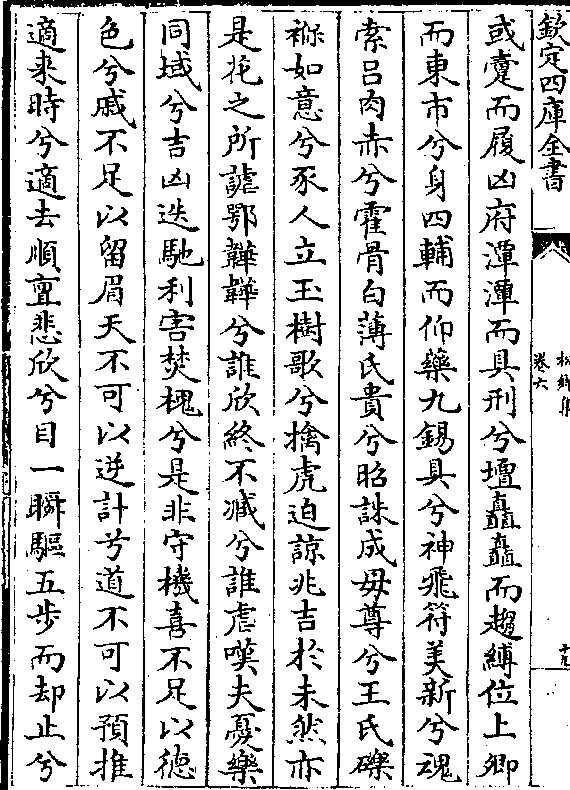 欽定四庫全書
卷六
或臺而履凶府潭潭而具刑兮壇矗矗而趨縛位上卿
而東市兮身四輔而仰藥九錫具兮神飛符美新兮魂
索吕肉赤兮霍骨白薄氏貴兮昭誅成毋尊兮王氏磔
禍如意兮豕人立玉樹歌兮擒虎迫諒兆吉於未然亦
是花之所謔鄂韡韡兮誰欣終不減兮誰虐嘆夫憂樂
同域兮吉凶迭馳利害焚槐兮是非守機喜不足以德
色兮戚不足以留眉天不可以逆計兮道不可以預推
適来時兮適去順亶悲欣兮目一瞬驅五步而却止兮